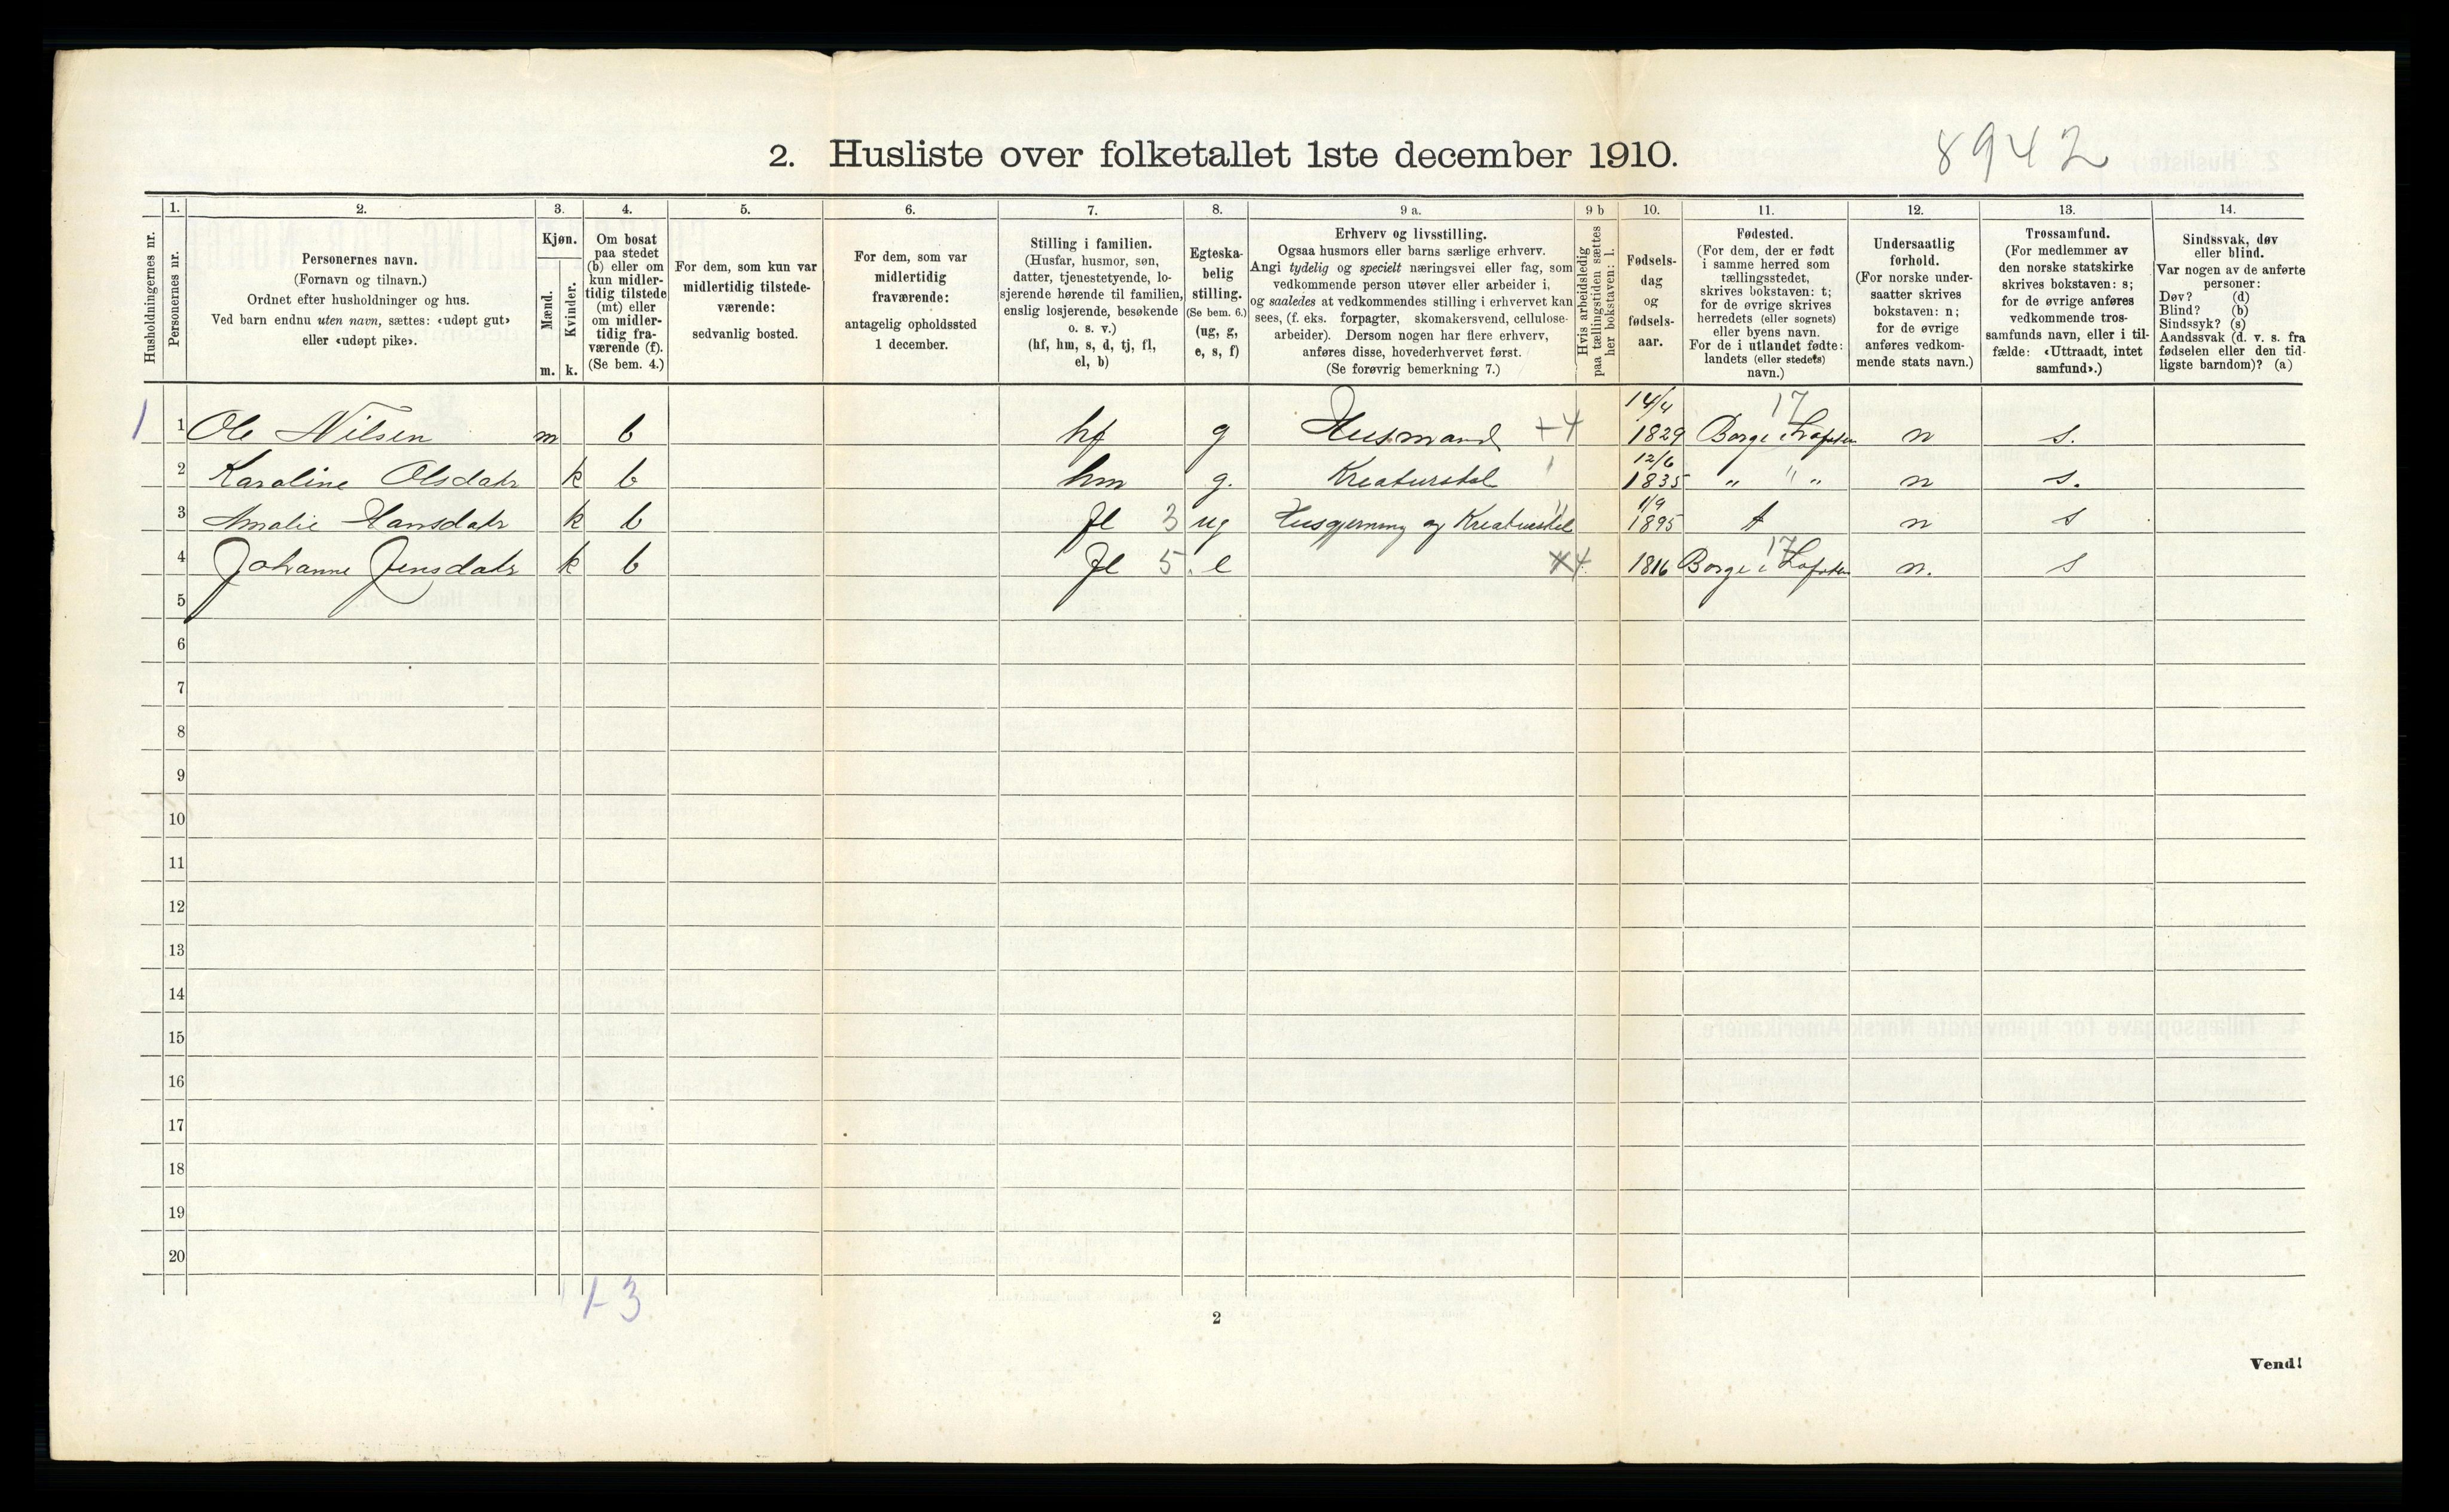 2. Husliste over folketallet 1ste december 1910.
8942
Husholdningernes nr.
1.
Personernes nr.
2.
Personernes navn.
(Fornavn og tilnavn.)
Ordnet efter husholdninger og hus.
Ved barn endnu uten navn, sættes: «udøpt gut»
eller «udøpt pike».
3.
Kjøn.
Mænd.
Kvinder.
m. k.
4.
Om bosat
paa stedet
(b) eller om
kun midler-
tidig tilstede
(mt) eller
om midler-
tidig fra-
værende (f).
(Se bem. 4.)
5.
For dem, som kun var
midlertidig tilstede-
værende:
sedvanlig bosted.
6.
For dem, som var
midlertidig
fraværende:
antagelig opholdssted
1 december.
7.
Stilling i familien.
(Husfar, husmor, søn,
datter, tjenestetyende, lo-
sjerende hørende til familien,
enslig losjerende, besøkende
o. s. v.)
(hf, hm, s, d, tj, fl,
el, b)
8.
Egteska-
belig
stilling.
(Se bem. 6.)
(ug, g,
e, s, f)
9 a.
Erhverv og livsstilling.
Ogsaa husmors eller barns særlige erhverv.
Angi tydelig og specielt næringsvei eller fag, som
vedkommende person utøver eller arbeider i,
og saaledes at vedkommendes stilling i erhvervet kan
sees, (f. eks. forpagter, skomakersvend, cellulose-
arbeider). Dersom nogen har flere erhverv,
anføres disse, hovederhvervet først.
(Se forøvrig bemerkning 7.)
9 b
Hvis arbeidsledig
paa tællingstiden sættes
her bokstaven: l.
10.
Fødsels-
dag
og
fødsels-
aar.
11.
Fødested.
(For dem, der er født
i samme herred som
tællingsstedet,
skrives bokstaven: t;
for de øvrige skrives
herredets (eller sognets)
eller byens navn.
For de i utlandet fødte:
landets (eller stedets)
navn.)
12.
Undersaatlig
forhold.
(For norske under-
saatter skrives
bokstaven: n;
for de øvrige
anføres vedkom-
mende stats navn.)
13.
Trossamfund.
(For medlemmer av
den norske statskirke
skrives bokstaven: s;
for de øvrige anføres
vedkommende tros-
samfunds navn, eller i til-
fælde: «Uttraadt, intet
samfund».)
14.
Sindssvak, døv
eller blind.
Var nogen av de anførte
personer:
Døv? (d)
Blind? (b)
Sindssyk? (s)
Aandssvak (d. v. s. fra
fødselen eller den tid-
ligste barndom)? (a)
14/4 17
1 1 Ole Nilsen m b hf g Husmand +4 1829 Borge i Lofoten n s.
12/6
2 Karoline Olsdatr k b hm g. Kreaturstel 1 1835 " " " n s.
1/9
3 Amalie Hansdatr k b fl 3 ug Husgjerning og Kreaturstel 1895 t n s
17
4 Johanne Jensdatr k b fl 5. e 4 1816 Borge i Lofoten n. s
5
6
7
8
9
10
11
12
13
14
15
16
17
18
19
20
1-3
2
Vend!